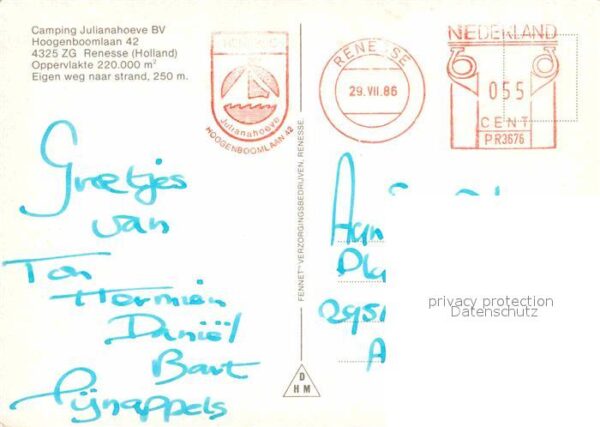 Camping Julianahoeve BV
Hoogenboomlaan 42
4325 ZG Renesse (Holland)
Oppervlakte 220.000 m²
Eigen weg naar strand, 250 m.
RENESSE
Julianahoeve
HOOGENBOOMLAAN 42
RENESSE
29.VII.86
NEDERLAND
055
CENT
PR3676
Groetjes
van
Ton
Hermien
Daniël
Bart
Pijnappels
FENNET" VERZORGINGSBEDRIJVEN, RENESSE.
D
HM
2951
A
privacy protection
Datenschutz